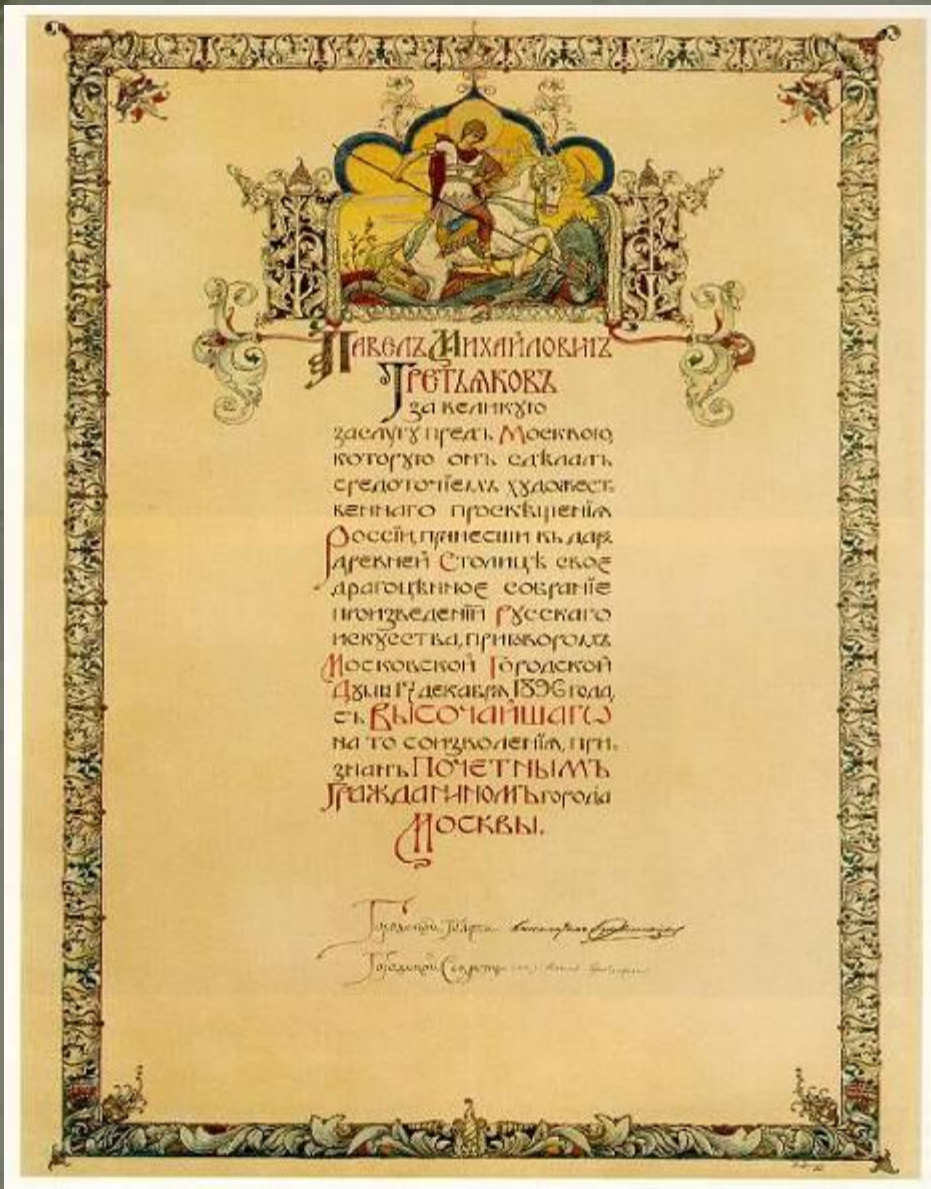 Павелъ Михайловичъ
Третьяковъ
за великую
заслугу предъ Москвою,
которую онъ сдѣлалъ
средоточіемъ художест
веннаго просвѣщенія
Россіи, принесши въ даръ
древней Столицѣ свое
драгоцѣнное собраніе
произведеній русскаго
искусства, приговоромъ
Московской Городской
Думы 17 декабря 1896 года,
съ ВЫСОЧАЙШАГО
на то соизволенія, при-
знанъ ПОЧЕТНЫМЪ
ГРАЖДАНИНОМЪ города
Москвы.
Городской Голова
Городской Секретарь